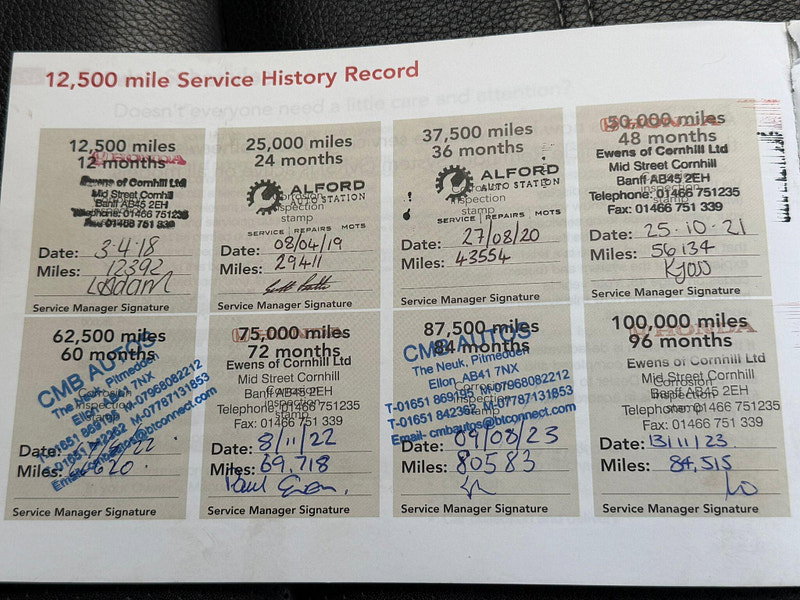 12,500 mile Service History Record
Doesn't everyone need a little care and attention?
12,500 miles
12 months
HONDA
Ewens of Cornhill Ltd
Mid Street Cornhill
Banff AB45 2EH
Telephone: 01466 751235
Fax: 01466 751 339
Date: 3-4-18
Miles: 12392
LAdam
Service Manager Signature
25,000 miles
24 months
ALFORD
AUTO STATION
Corrosion
inspection
stamp
SERVICE | REPAIRS | MOTS
Date: 08/04/19
Miles: 29411
Service Manager Signature
37,500 miles
36 months
ALFORD
AUTO STATION
Corrosion
inspection
stamp
SERVICE | REPAIRS | MOTS
Date: 27/08/20
Miles: 43554
Service Manager Signature
50,000 miles
HONDA
48 months
Ewens of Cornhill Ltd
Mid Street Cornhill
Banff AB45 2EH
Telephone: 01466 751235
Fax: 01466 751 339
Date: 25.10.21
Miles: 56134
Service Manager Signature
62,500 miles
60 months
CMB AUTOS
The Neuk, Pitmedden
Ellon, AB41 7NX
T-01651 869195 M-07968082212
T-01651 842362 M-07787131853
Email- cmbautos@btconnect.com
Date:
Miles:
Service Manager Signature
75,000 miles
HONDA
72 months
Ewens of Cornhill Ltd
Mid Street Cornhill
Banff AB45 2EH
Telephone: 01466 751235
Fax: 01466 751 339
Date: 8/11/22
Miles: 69,718
Paul Ewen.
Service Manager Signature
87,500 miles
84 months
CMB AUTOS
The Neuk, Pitmedden
Ellon, AB41 7NX
T-01651 869195 M-07968082212
T-01651 842362 M-07787131853
Email- cmbautos@btconnect.com
Date: 09/08/23
Miles: 80583
Service Manager Signature
100,000 miles
HONDA
96 months
Ewens of Cornhill Ltd
Mid Street Cornhill
Corrosion
Banff AB45 2EH
inspection
Telephone: 01466 751235
stamp
Fax: 01466 751 339
Date: 13/11/23
Miles: 84,515
Service Manager Signature